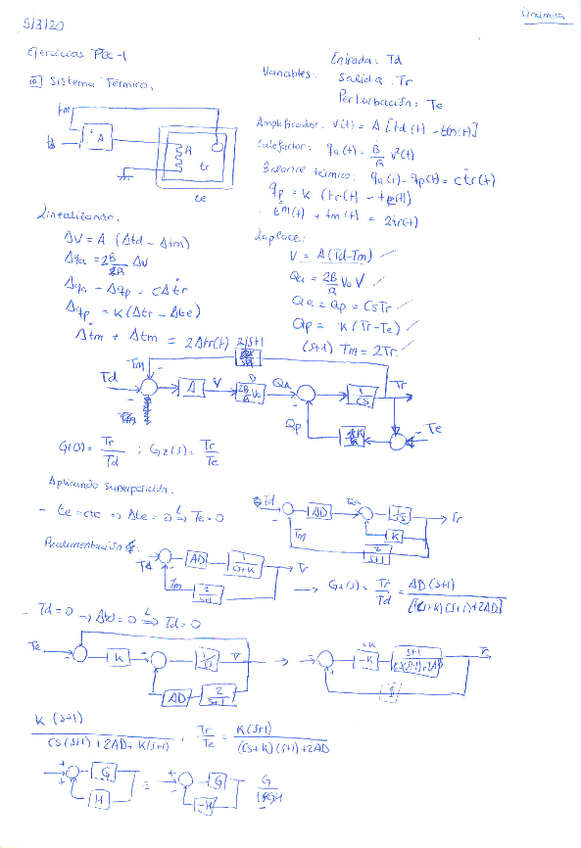 5/3/20
Dinámica
Ejercicios PEC-1
Sistema Térmico.
Variables:
Entrada: Td
Salida: Tr
Perturbación: Te
tm
td
A
R
tr
te
Amplificador: v(t) = A [td(t) - tm(t)]
Calefactor: qa(t) = B/R v²(t)
Balance térmico: qa(t) - qp(t) = c ṫr(t)
qp = K (tr(t) - te(t))
ṫm(t) + tm(t) = 2tr(t)
Linealizando.
ΔV = A (Δtd - Δtm)
Δqa = 2B/R ΔV
Δqa - Δqp = cΔṫr
Δqp = K(Δtr - Δte)
Δṫm + Δtm = 2Δtr(t)
Laplace:
V = A(Td-Tm)
Qa = 2B/R Vo V
Qa - Qp = CsTr
Qp = K(Tr-Te)
(s+1) Tm = 2Tr
2/s+1
Tm
Td
A
V
2B/R Vo
Qa
1/cs
Tr
Qp
K
Te
G1(s) = Tr/Td ; G2(s) = Tr/Te
Aplicando superposición.
- te = cte => Δte = 0 L=> Te = 0
Td
AD
Qa
1/cs
Tr
K
Tm
2/s+1
Realimentación
Td
AD
1/cs+K
Tr
Tm
2/s+1
G1(s) = Tr/Td = AD(s+1)/[(cs+K)(s+1)+2AD]
- Td = 0 -> Δtd = 0 L=> Td = 0
Te
K
1/cs
Tr
AD
2/s+1
-K
s+1/cs(s+1)+2AD
Tr
K(s+1)/cs(s+1)+2AD+K(s+1)
Tr/Te = K(s+1)/(cs+K)(s+1)+2AD
G
H
=
G
-H